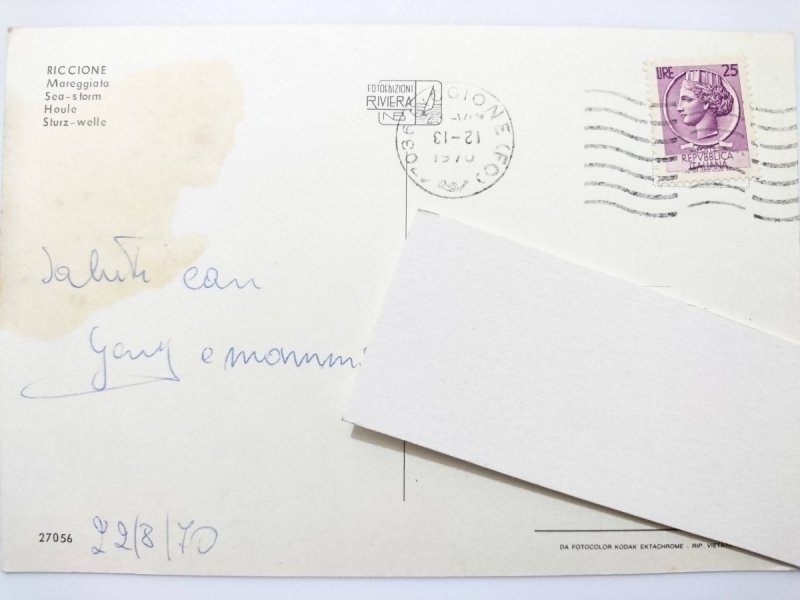 RICCIONE
Mareggiata
Sea-storm
Houle
Sturz-welle
FOTOEDIZIONI
RIVIERA
CIONE (FO)
12-13
LIRE 25
REPVBBLICA
ITALIANA
Saluti cari
e mamm
27056
22/8/70
DA FOTOCOLOR KODAK EKTACHROME - RIP. VIETAT